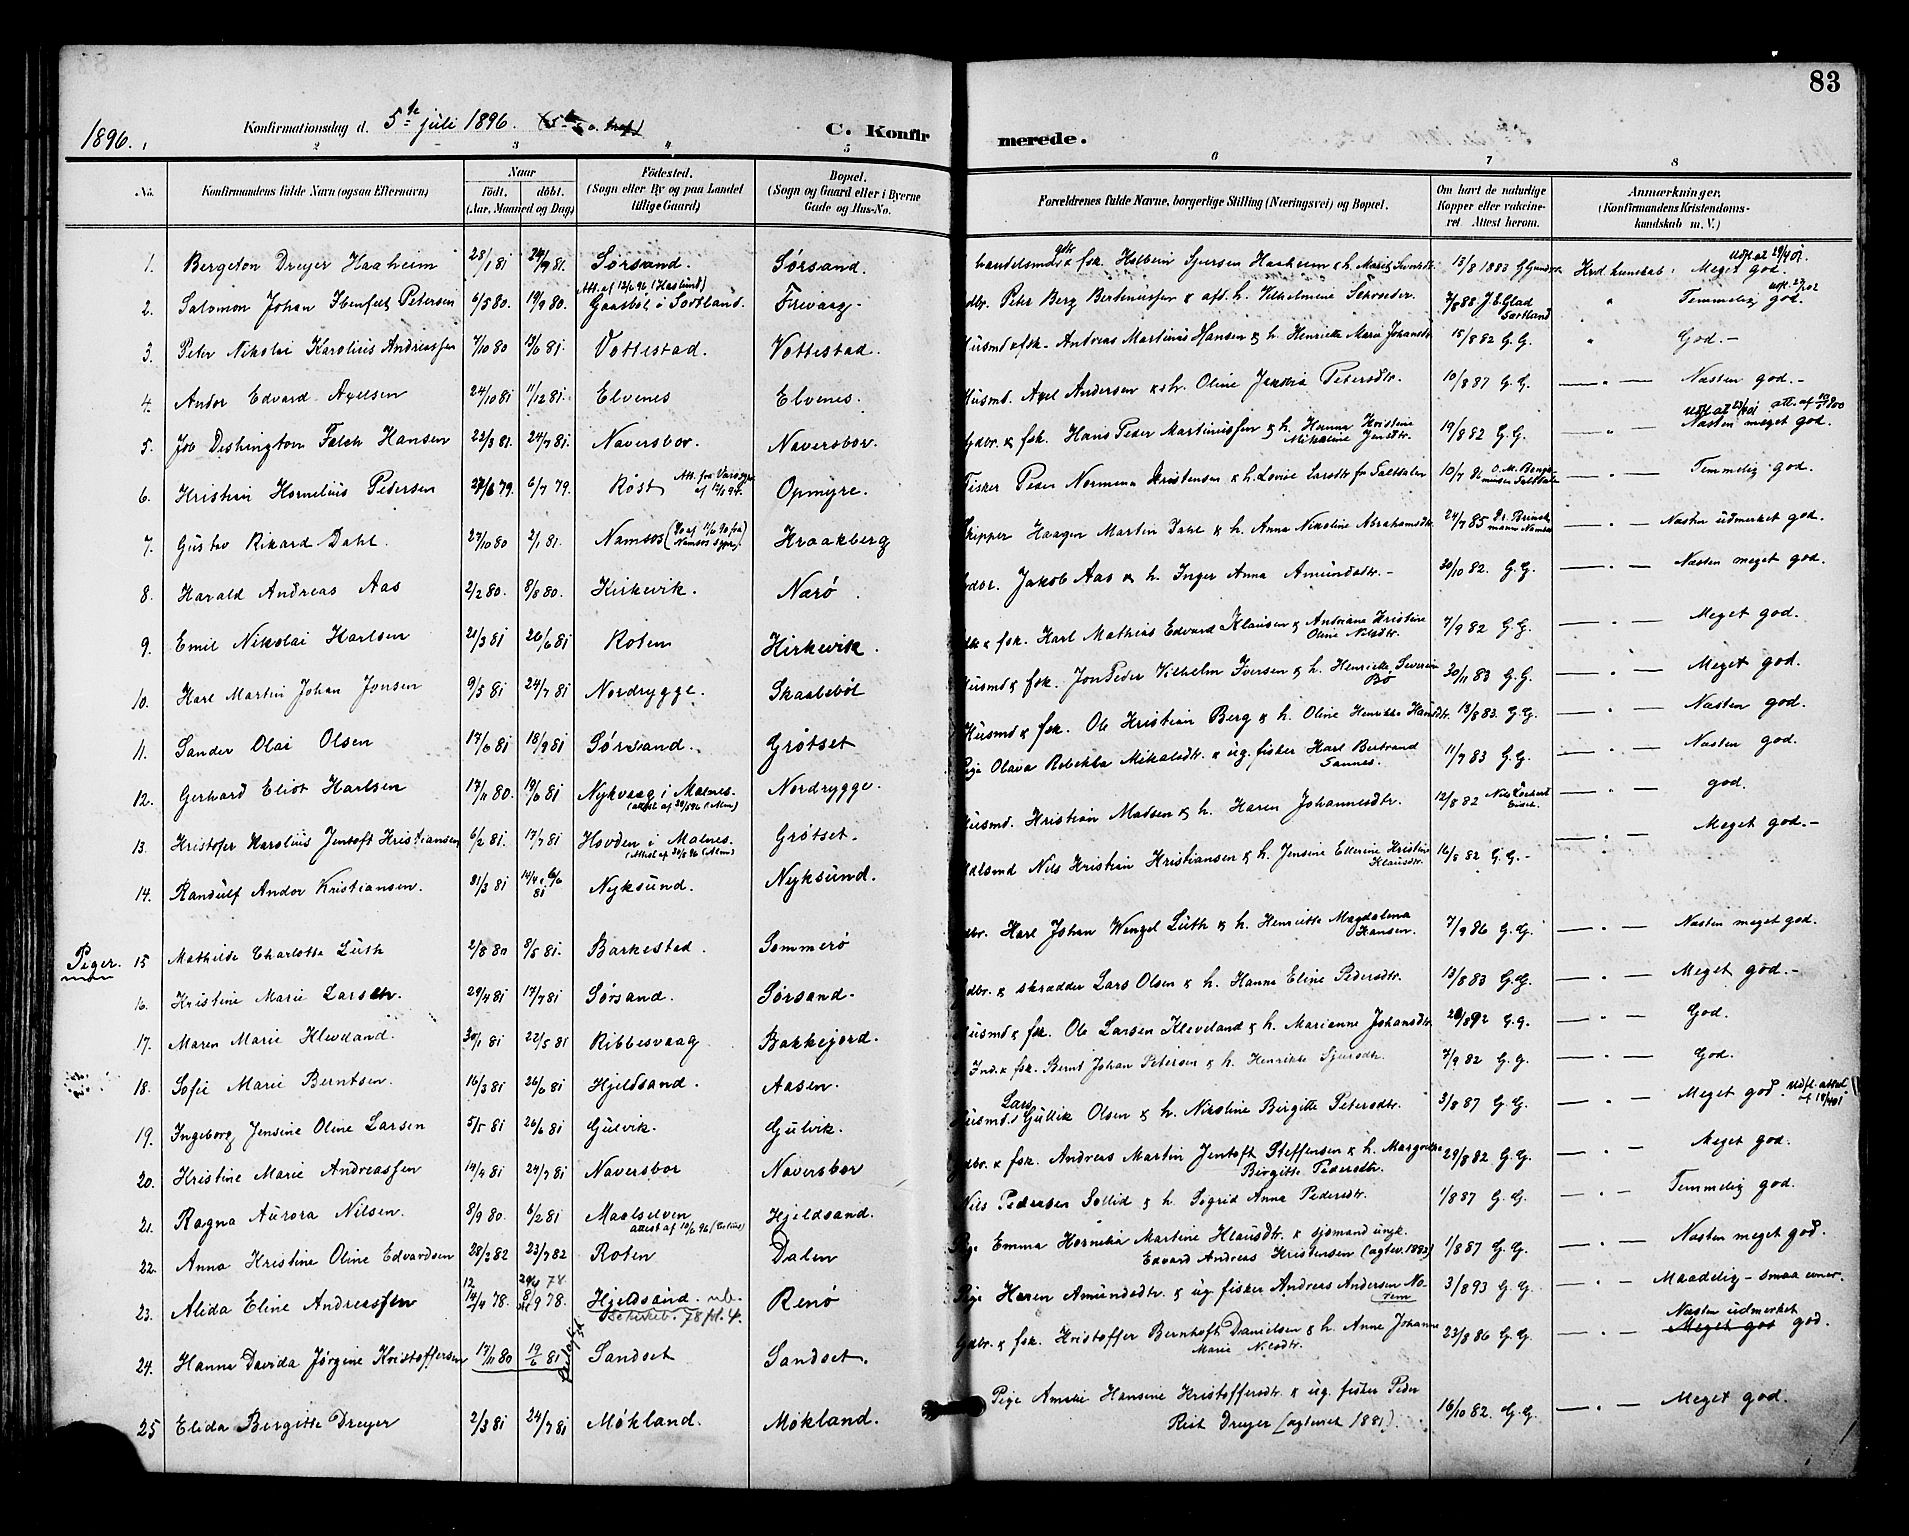 83
1896.
Konfirmationsdag d. 5te juli 1896.
C. Konfirmerede.
1 2 3 4 5 6 7 8
No.
Konfirmandens fulde Navn (ogsaa Efternavn)
Naar
født. døbt.
(Aar, Maaned og Dag)
Fødested.
(Sogn eller By og paa Landet
tillige Gaard)
Bopæl.
(Sogn og Gaard eller i Byerne
Gade og Hus-No.
Forældrenes fulde Navne, borgerlige Stilling (Næringsvei) og Bopæl.
Om havt de naturlige
Kopper eller vakcine-
ret. Attest herom.
Anmærkninger.
(Konfirmandens Kristendoms-
kundskab m. V.)
1. Bergeton Dreyer Haaheim 28/1 81 24/9 81. Sørsand. Sørsand. 13/8 1883 Krd. kunskab: Meget god. Udst. at 29/4 01
2. Salomon Johan Ibenfelt Petersen 6/5 80. 19/9 80. Gaasbøl i Sortland. Att. af 12/6 96 (Haslund) Frevaag. Gdbr. Peter Berg Berteniussen & afd. h. Vilhelmine Schrøder. 7/8 88 J. E. Glad Sortland " Temmelig god.
3. Peter Nikolai Karolius Andreassen 7/10 80 Vottestad. Vottestad. Husmd & fsk. Andreas Martinus Hansen & h. Henriette Marie Johansdt 15/8 82 G. G. " God. -
4. Andor Edvard Axelsen 24/10 81 11/12 81. Elvenes. Elvenes. Husmd. Axel Andersen & h. Oline Jakobia Petersdtr. 10/8 87 G. G. — " — Næsten god. -
5. Job Dishington Falch Hansen 22/3 81. 24/7 81. Naversbor. Naversbor. Gdbr. & fsk. Hans Peder Martinussen & h. Hanna Kristine Mikaline Jensdtr. 19/8 82 G. G. " Næsten meget god.
6. Kristian Hornelius Pedersen 27/6 79. 6/7 79. Røst Opmyre. Fisker Peder Normann Kristensen & h. Lovise Larsdtr fra Saltdalen 10/7 Temmelig god.
7. Gustav Rikard Dahl. 27/10 80 2/1 81. Namsos Kraakberg Skipper Haagen Martin Dahl & h. Anna Nikoline Abrahamsdtr. 24/7 85 — " — Næsten udmerket god.
8. Harald Andreas Aas 2/2 80. 8/8 80. Kirkevik. Nærø. Gdbr. Jakob Aas & h. Inger Anna Amundsdtr. - 20/10 82. G. G. — " — Næsten meget god.
9. Emil Nikolai Karlsen 21/3 81 26/6 81 Roten Kirkevik. & fsk. Karl Mathias Edvard Klausen & Andriane Kristine Oline Nilsdtr. 7/9 82 G. G. — " — Meget god.
10. Karl Martin Johan Jonsen 9/5 81 24/7 81 Nordrygge. Skaabebøl Husmd & fsk. Jon Peder Vilhelm Iversen & h. Henriette Severin Bø 30/11 83 G. G. — " — Meget god.
11. Sander Olai Olsen 17/6 81 18/9 81 Sørsand. Grøtset Husmd & fsk. Ole Kristian Berg & h. Oline Henrikke Hansdtr. 13/8 83. G. G. — " — Næsten god.
12. Gerhard Eliot Karlsen 17/11 80. 19/6 81 Nykvaag i Malnes. Nordrygge. Pige Olava Rebekka Mikalsdtr. & ug. fisker Karl Bertrand Sannes. 11/7 83 G. G. — " — Næsten god.
13. Kristofer Karolius Jentoft Kristiansen 6/2 81. 17/7 81 Hovden i Malnes. Grøtset. Husmd. Kristian Madsen & h. Karen Johannesdtr. 12/8 82 — " — god.
14. Randulf Andor Kristiansen. 31/3 81 Nyksund. Nyksund. Nils Kristian Kristiansen & h. Jensine Ellerine Kristine Klausdtr. 16/8 82 G. G. - — " — Meget god. -
Piger.
15 Mathilde Charlotte Lüth 2/8 80 8/5 81. Barkestad. Sommerø Gdbr. Karl Johan Wenzel Lüth & h. Henriette Magdalena Hansen. 7/9 86 G. G. — " — Næsten meget god.
16. Kristine Marie Larsen. 29/4 81 17/7 81 Sørsand. Sørsand. Gdbr. & skrædder Lars Olsen & h. Hanna Eline Pedersdtr. 13/8 83 G. G. — " — Meget god. -
17. Maren Marie Klevland. 30/1 81 22/5 81 Ribbesvaag Bakkejord. Husmd & fsk. Ole Larsen Kleveland & h. Marianne Johansdtr 28/8 92 G. G. — " — God.
18. Sofie Marie Berntsen. 16/3 81 26/6 81 Hjeldsand. Aasen. Ind. & fsk. Bernt Johan Petersen & h. Henrikke Sjursdtr. 7/9 82 G. G. — " — God.
19. Ingeborg Jensine Oline Larsen 5/5 81 26/6 81 Gulvik. Gulvik. Husmd. Lars Gullik Olsen & h. Nikoline Birgitte Petersdtr. 3/8 87 G. G. — " — Meget god. Udst. attest
20. Kristine Marie Andreassen 14/4 81 24/7 81 Naversbor Naversbor Gdbr. & fsk. Andreas Martin Jentoft Steffensen & h. Margrethe Birgitte Pedersdtr. 29/8 82 G. G. — " — Meget god.
21. Ragna Aurora Nilsen. 8/9 80. 6/2 81 Maalselven Hjeldsand. Nils Pedersen Sollid & h. Sigrid Anna Pedersdtr. 1/8 87 G. G. — " — Temmelig god.
22. Anna Kristine Oline Edvardsen 28/2 82 23/7 82 Roten Dalen Pige Emma Kornelia Martine Klausdtr. & sjømand ungk. Edvard Andreas Kristensen (agtev. 1882) 1/8 87 G. G. — " — Næsten meget god.
23. Alida Eline Andreassen 14/4 78. 8/9 78. Hjeldsand. Renø Pige Karen Amundsdtr. & ug. fisker Andreas Andersen Norem 3/8 93 G. G. — " — Maadelig - smaa evner.
24. Hanna Davida Jørgine Kristoffersen 17/11 80 19/6 81 Sandset Sandset. Gdbr. & fsk. Kristoffer Bernhoft Danielsen & h. Anne Johanne Marie Nilsdtr. 23/8 86 G. G. — " — Næsten udmerket Meget god god.
25 Elida Birgitte Dreyer 2/3 81 24/7 81 Møkland. Møkland. Pige Amalie Hansine Kristoffersdtr. & ug. fisker Peder Rist Dreyer (agteviet 1881). 16/10 82. G. G. — " — Meget god.